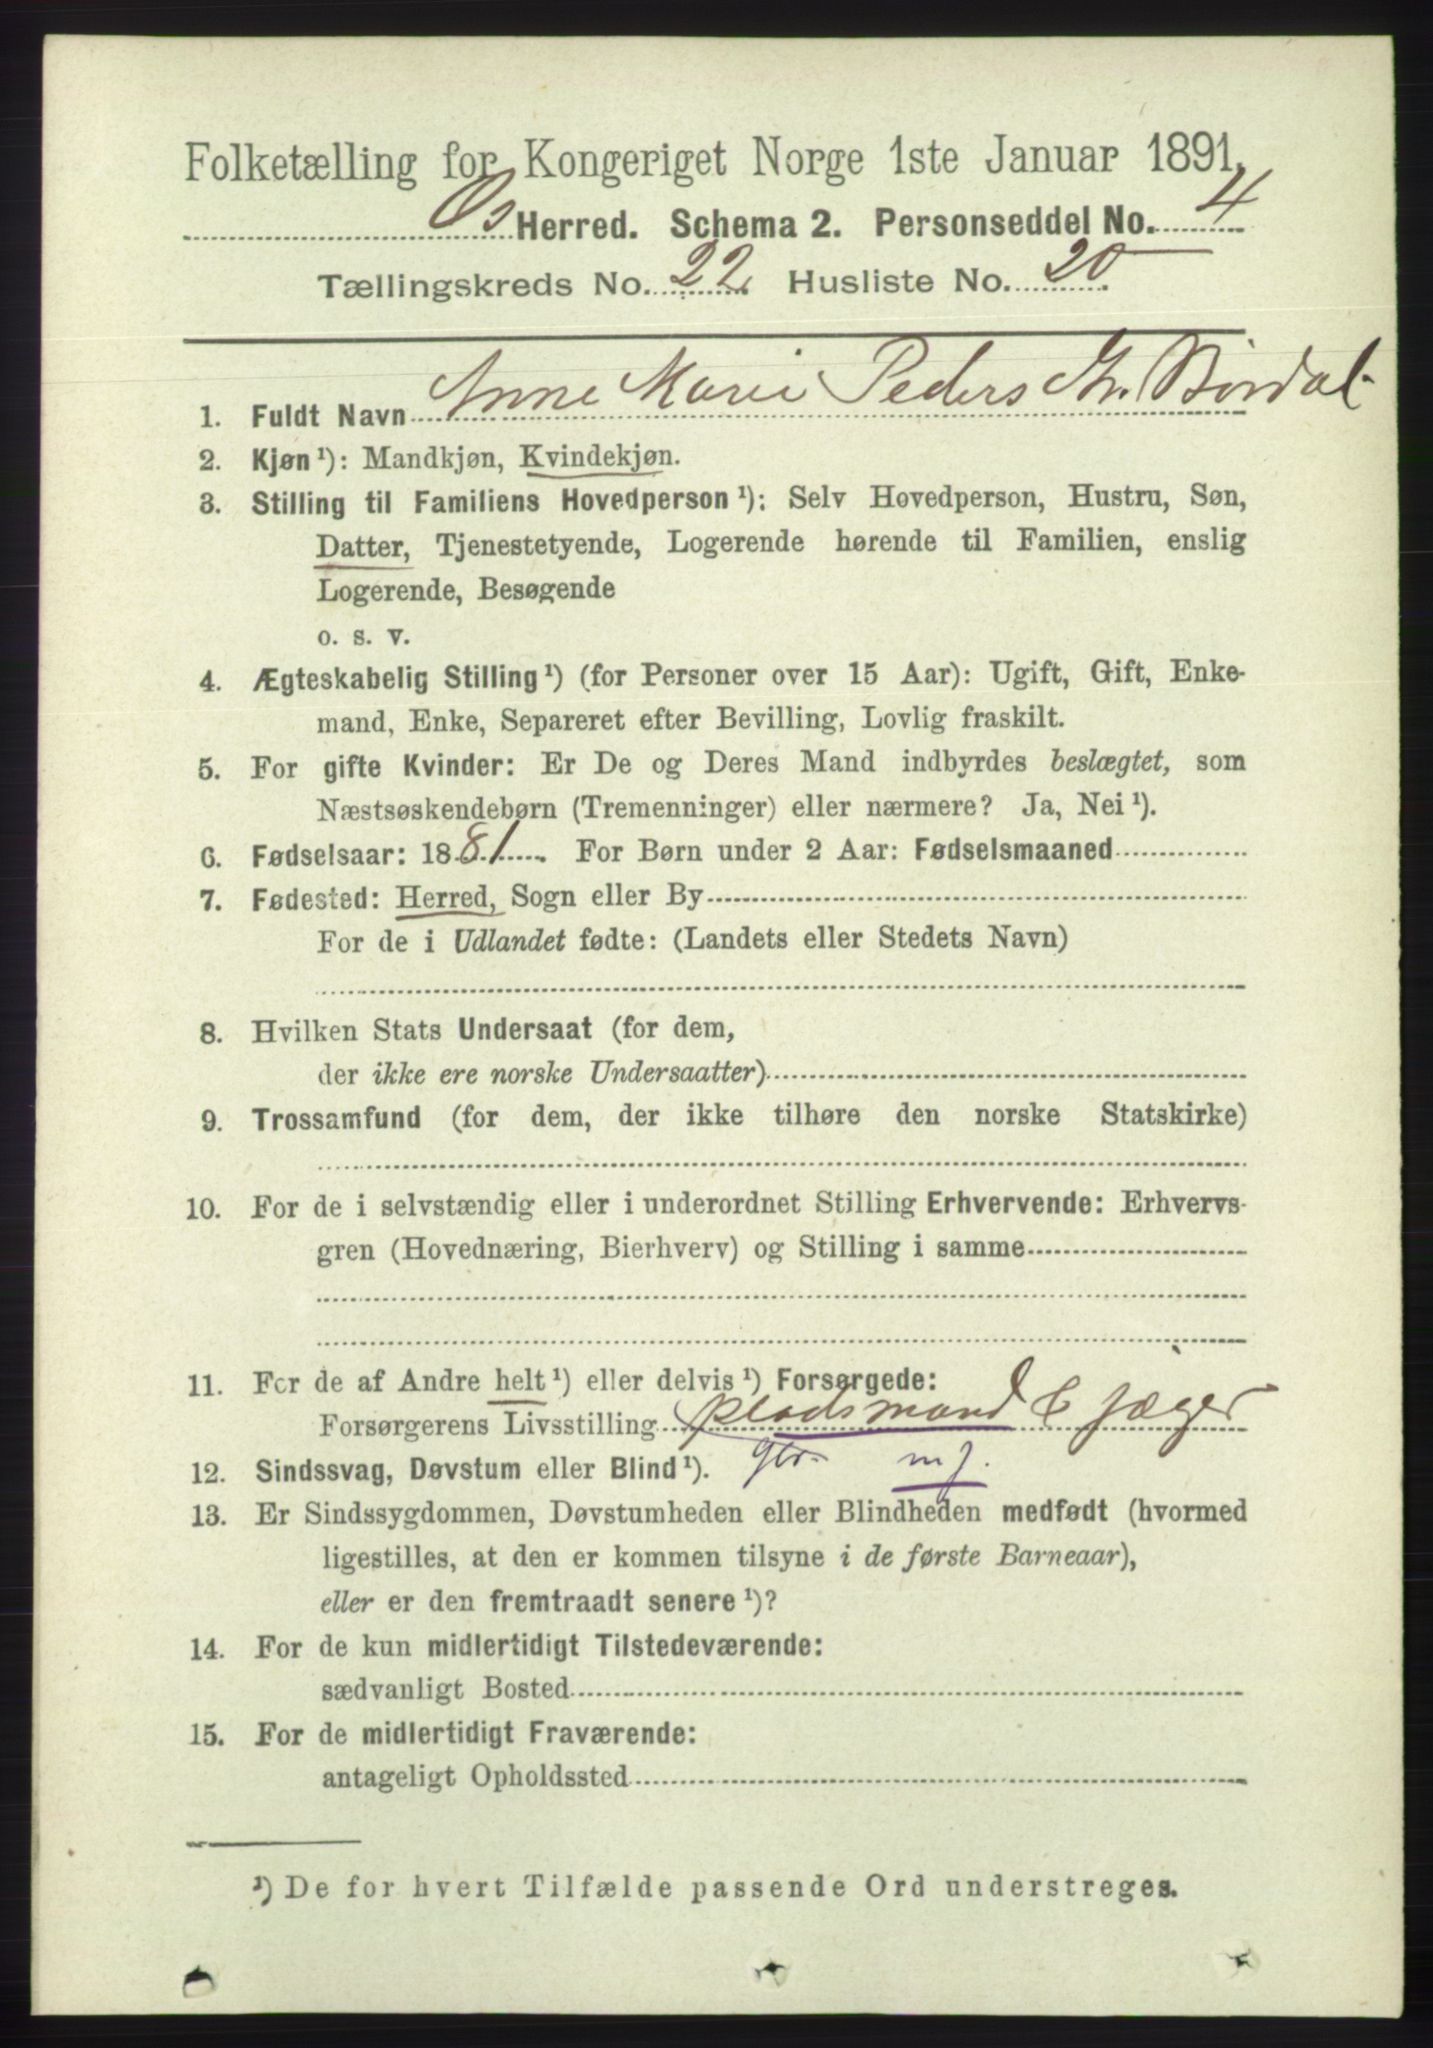 Folketælling for Kongeriget Norge 1ste Januar 1891.
Os Herred. Schema 2. Personseddel No. 4
Tællingskreds No. 22. Husliste No. 20
1. Fuldt Navn Anne Marie Peders
2. Kjøn ¹): Mandkjøn, Kvindekjøn.
3. Stilling til Familiens Hovedperson ¹): Selv Hovedperson, Hustru, Søn,
Datter, Tjenestetyende, Logerende hørende til Familien, enslig
Logerende, Besøgende
o. s. v.
4. Ægteskabelig Stilling ¹) (for Personer over 15 Aar): Ugift, Gift, Enke-
mand, Enke, Separeret efter Bevilling, Lovlig fraskilt.
5. For gifte Kvinder: Er De og Deres Mand indbyrdes beslægtet, som
Næstsøskendebørn (Tremenninger) eller nærmere? Ja, Nei ¹).
6. Fødselsaar: 1881. For Børn under 2 Aar: Fødselsmaaned
7. Fødested: Herred, Sogn eller By
For de i Udlandet fødte: (Landets eller Stedets Navn)
8. Hvilken Stats Undersaat (for dem,
der ikke ere norske Undersaatter)
9. Trossamfund (for dem, der ikke tilhøre den norske Statskirke)
10. For de i selvstændig eller i underordnet Stilling Erhvervende: Erhvervs-
gren (Hovednæring, Bierhverv) og Stilling i samme
11. For de af Andre helt ¹) eller delvis ¹) Forsørgede:
Forsørgerens Livsstilling pladsmand & jæger
12. Sindssvag, Døvstum eller Blind ¹). m j.
13. Er Sindssygdommen, Døvstumheden eller Blindheden medfødt (hvormed
ligestilles, at den er kommen tilsyne i de første Barneaar),
eller er den fremtraadt senere ¹)?
14. For de kun midlertidigt Tilstedeværende:
sædvanligt Bosted
15. For de midlertidigt Fraværende:
antageligt Opholdssted
¹) De for hvert Tilfælde passende Ord understreges.